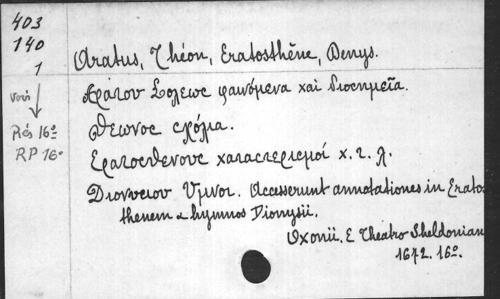 403
140
1
Aratus, Théon, Eratosthène, Denys.
Ἀρατου Σολεως φαινόμενα καὶ διοσημεῖα.
Θεωνος σχόλια.
voir
Rés 16º
RP 16º
Ερατοσθενους καταστερισμοί κ. τ. λ.
Διονυσιου Υμνοι. Accesserunt annotationes in Eratos
thenem & hymnos Dionysii.
Oxonii. E Theatro Sheldonian
1672. 16º.